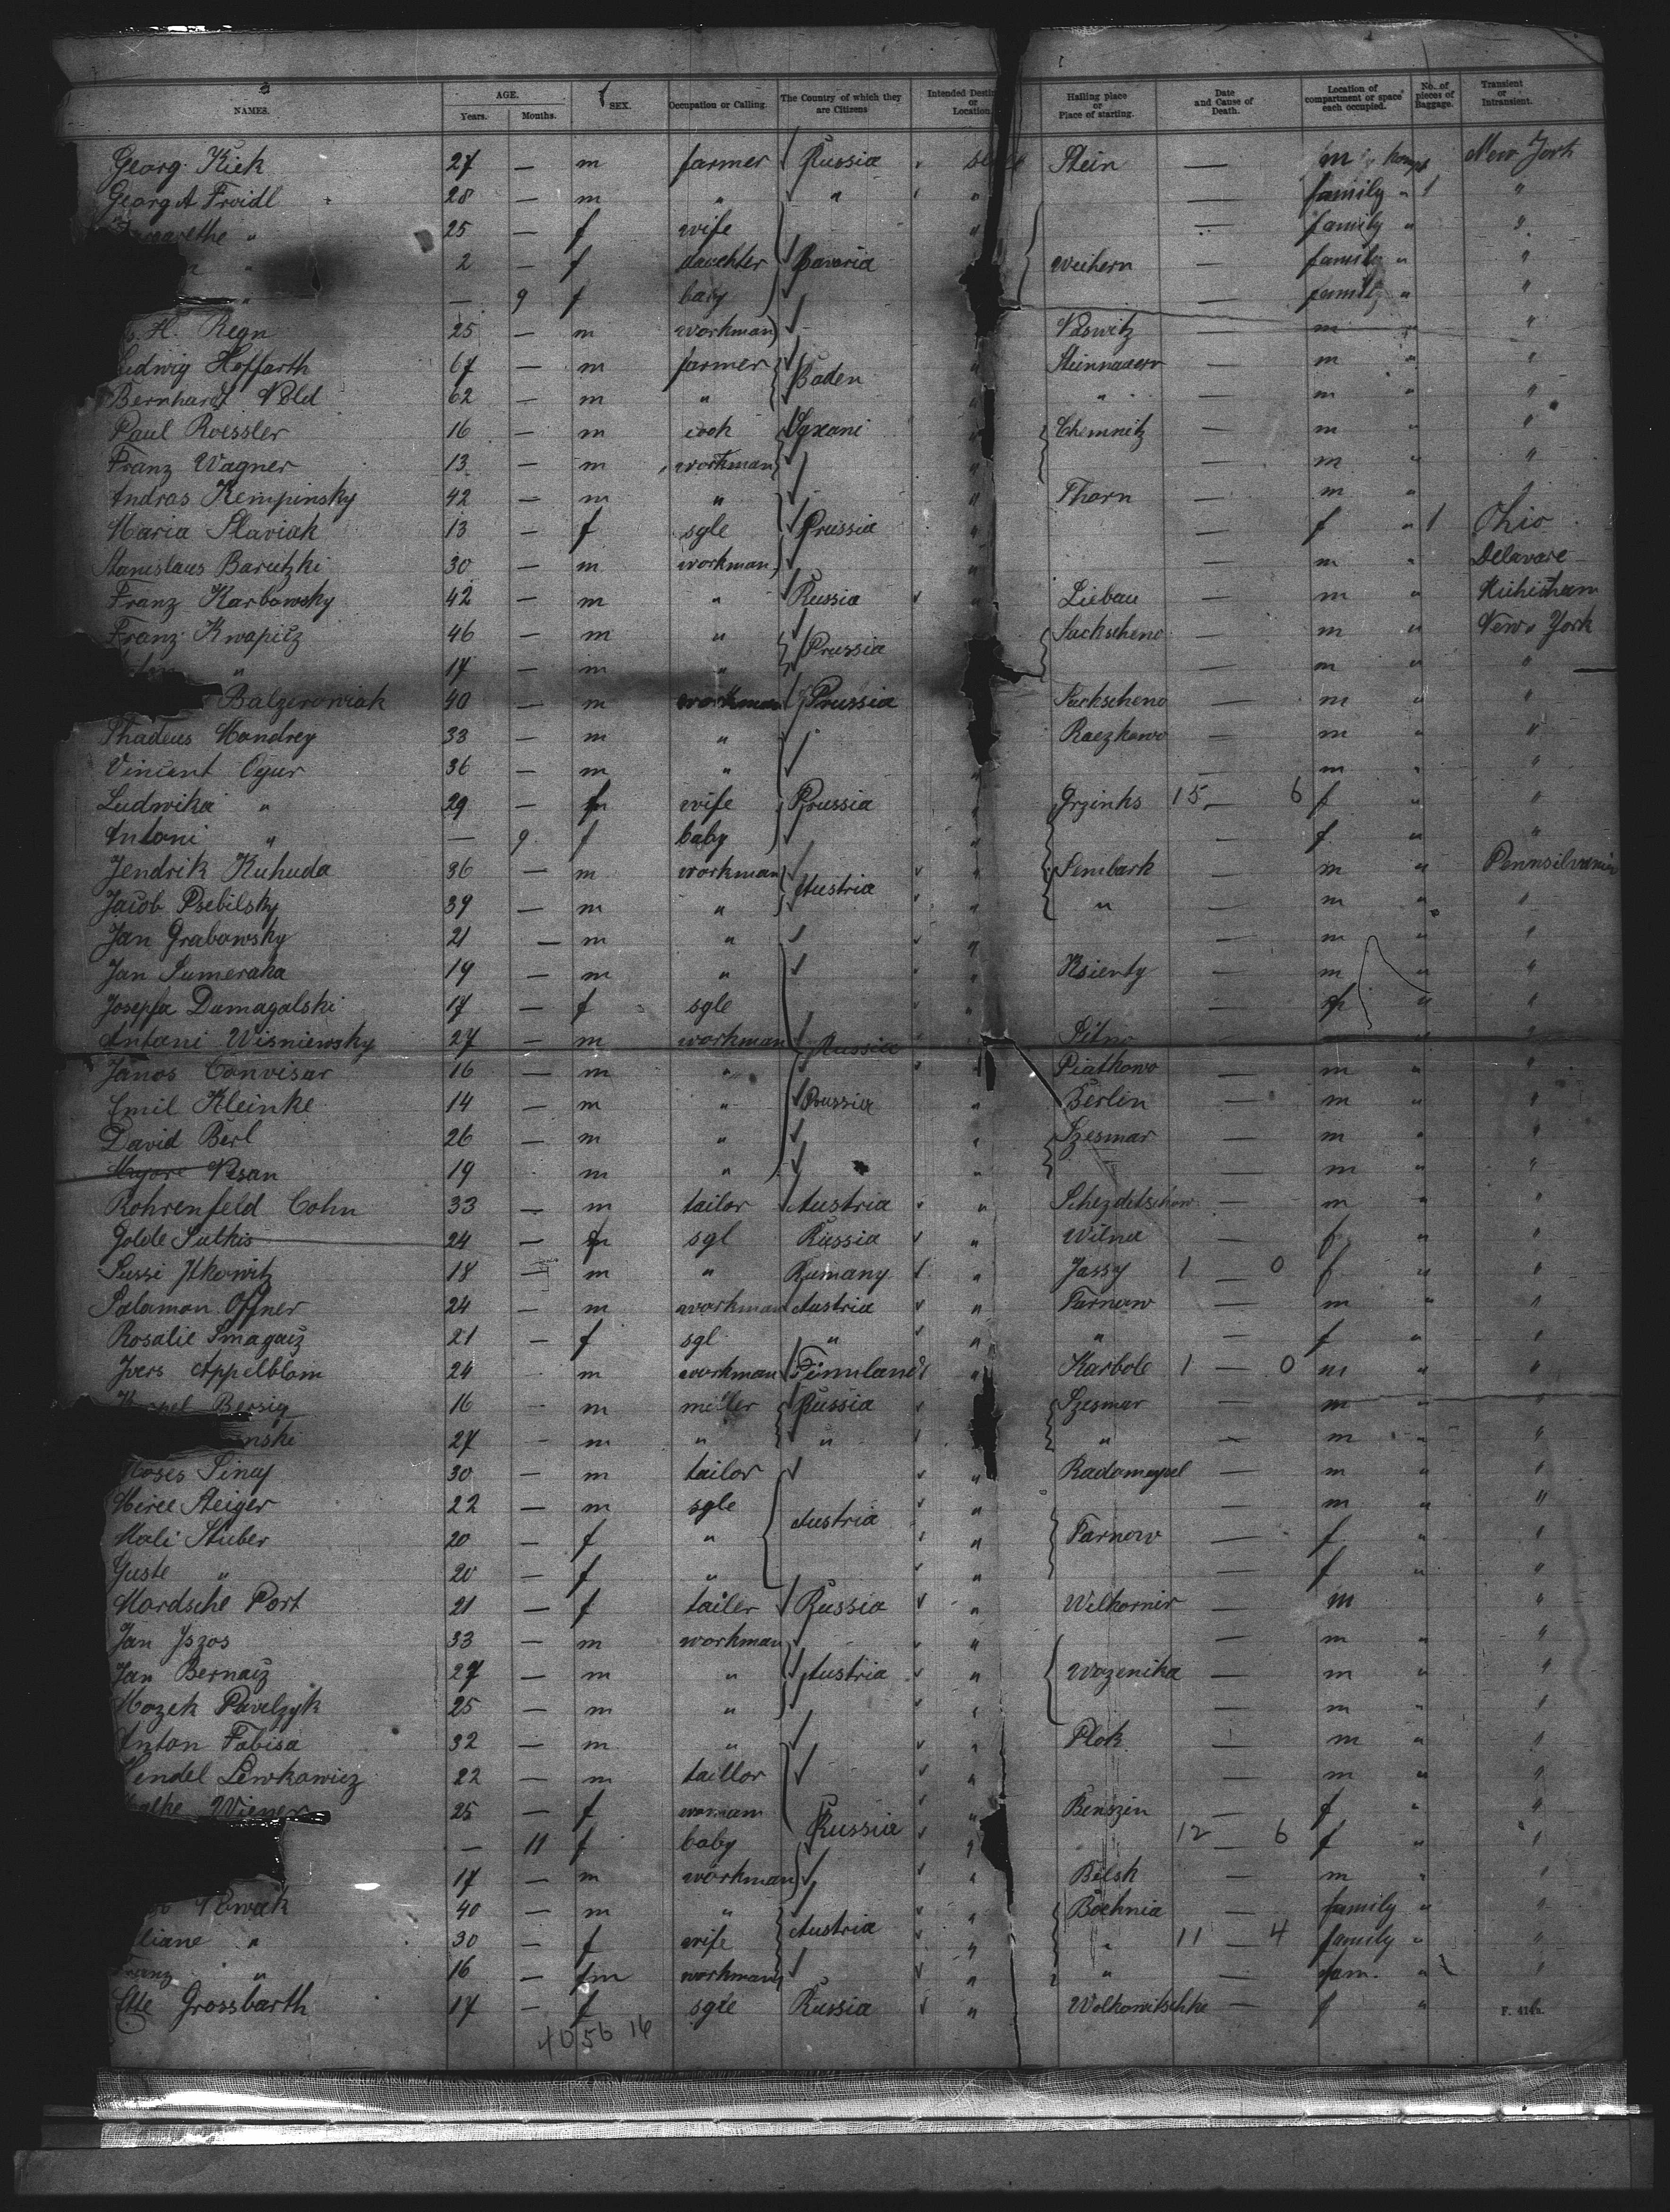 NAMES. AGE. Years. Months. SEX. Occupation or Calling. The Country of which they are Citizens Intended Destin or Location. Hailing place or Place of starting. Date and Cause of Death. Location of compartment or space each occupied. No. of pieces of Baggage. Transient or Intransient.
Georg Kick 27 — m farmer Russia Stein — m New York
Georg A Froidl 28 — m " " " — family " 1 "
" 25 — f wife " — family " "
" 2 — f daughter Bavaria Weihern — family " "
" — 9 f baby — family " "
H. Regn 25 — m workman — m " "
Ludwig Hoffarth 67 — m farmer Baden " — m " "
Bernhardt Nold 62 — m " " " — m " "
Paul Roessler 16 — m cook Saxani " Chemnitz — m " "
Franz Wagner 13 — m workman " — m " "
Andras Kempinsky 42 — m " " Thorn — m " "
Maria Slaviak 13 — f sgle Prussia " — f " 1 Ohio
Stanislaus Barutzki 30 — m workman " — m " Delavare
Franz Karbowsky 42 — m " Russia " Liebau — m "
Franz Kwapicz 46 — m " Prussia Sackscheno — m " New York
" 17 — m " — m " "
Balzerowiak 40 — m workman Prussia Sackscheno — m " "
Thadeus Mandrey 33 — m " Raczkowo — m " "
Vincent Ogur 36 — m " " — m " "
Ludwika " 29 — f wife Prussia " Grzinks 15 — 6 f " "
Antoni " — 9 f baby " — f " "
Jendrik Kuhuda 36 — m workman Austria " Sembark — m " Pennsilvania
Jacob Psebilsky 39 — m " " " — m " "
Jan Grabowsky 21 — m " " — m " "
Jan Sumeraka 19 — m " " Ksienty — m " "
Josepfa Damagalski 17 — f sgle " — f " "
Antani Wisniewsky 27 — m workman Russia " — m " "
Janos Convisar 16 — m " " Piatkowo — m " "
Emil Kleinke 14 — m " Russia " Berlin — m " "
David Berl 26 — m " " Szesmar — m " "
Nesan 19 m " " — m " "
Rohrenfeld Cohn 33 — m tailor Austria " — m " "
Golde Sutkis 24 — f sgl Russia " Wilna — f " "
Sussi Itkowitz 18 — m " Rumany " Jassy 1 — 0 f " "
Salamon Offner 24 — m workman Austria " Tarnow — m " "
Rosalie Smagacz 21 — f sgl " " " — f " "
Ivers Appelblom 24 m workman Finnland " Karbole 1 — 0 m " "
Bersig 16 — m miller Russia Szesmar — m " "
nski 27 — m " " " — m " "
Moses Pinay 30 — m tailor " Radomeysel — m " "
Mirce Steiger 22 — m sgle Austria " — m " "
Mali Stuber 20 — f " " Tarnow — f " "
Guste " 20 — f " " — f " "
Mardsche Port 21 — f tailer Russia " Welkornir — m "
Jan Iszos 33 — m workman " — m " "
Jan Bernacz 27 — m " Austria " Wozenika — m " "
Mozek Pavelzyk 25 — m " " — m " "
Anton Fabisa 32 — m " " Plok — m " "
Mendel Lewkowicz 22 — m taillor " — m " "
Wiener 25 — f woman Russia " Benszin — f " "
— 11 f baby " 12 — 6 f " "
17 — m workman " Bilsk — m " "
Nowak 40 — m " Austria " Bochnia — family " "
" 30 — f wife " " 11 — 4 family " "
Franz " 16 — m workman " " — fam. " "
Ette Grossbarth 17 — f sgle Russia " Wolkowitschke — f "
40 56 16